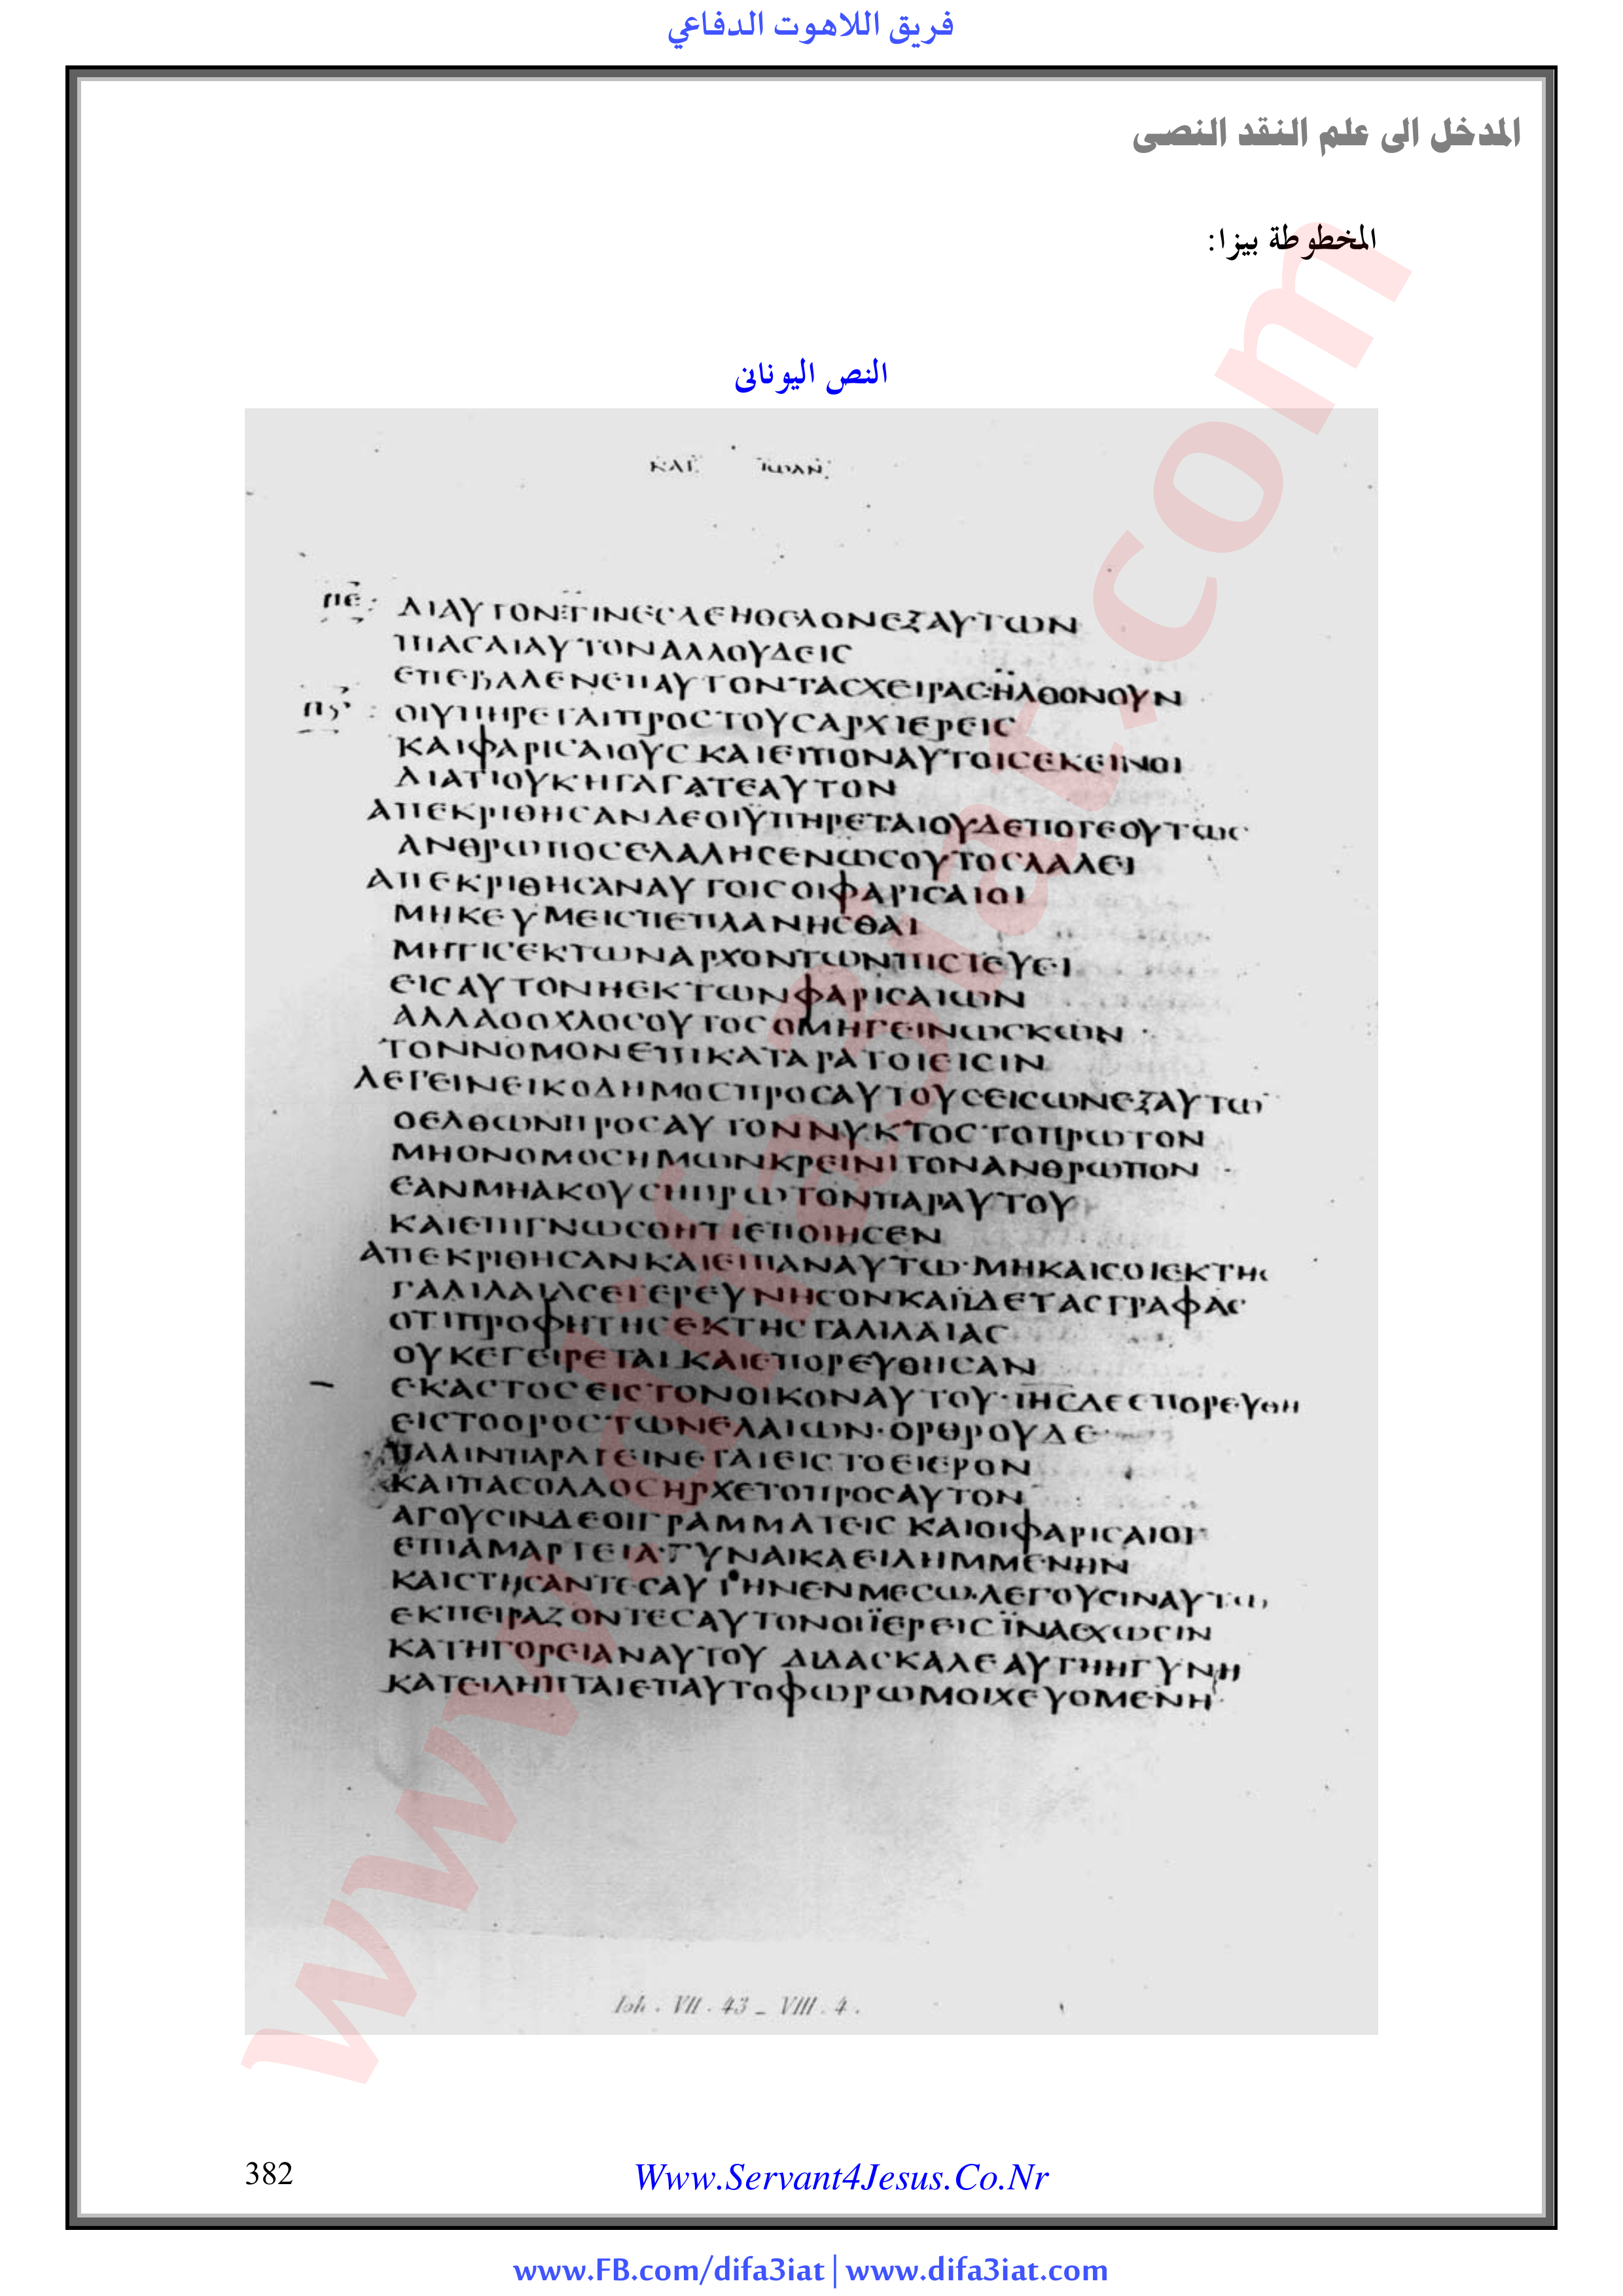 فريق اللاهوت الدفاعي
المدخل الى علم النقد النصى
المخطوطة بيزا:
النص اليونانى
ΚΑΤ ΙΩΑΝ
ΔΙΑΥΤΟΝ ΤΙΝΕΣΔΕΗΘΕΛΟΝΕΞΑΥΤΩΝ
ΠΙΑΣΑΙΑΥΤΟΝΑΛΛΟΥΔΕΙΣ
ΕΠΕΒΑΛΕΝΕΠΑΥΤΟΝΤΑΣΧΕΙΡΑΣ·ΗΛΘΟΝΟΥΝ
ΟΙΥΠΗΡΕΤΑΙΠΡΟΣΤΟΥΣΑΡΧΙΕΡΕΙΣ
ΚΑΙΦΑΡΙΣΑΙΟΥΣ ΚΑΙΕΙΠΟΝΑΥΤΟΙΣΕΚΕΙΝΟΙ
ΔΙΑΤΙΟΥΚΗΓΑΓΑΤΕΑΥΤΟΝ
ΑΠΕΚΡΙΘΗΣΑΝΔΕΟΙΥΠΗΡΕΤΑΙΟΥΔΕΠΟΤΕΟΥΤΩΣ
ΑΝΘΡΩΠΟΣΕΛΑΛΗΣΕΝΩΣΟΥΤΟΣΛΑΛΕΙ
ΑΠΕΚΡΙΘΗΣΑΝΑΥΤΟΙΣΟΙΦΑΡΙΣΑΙΟΙ
ΜΗΚΕΥΜΕΙΣΠΕΠΛΑΝΗΣΘΑΙ
ΜΗΤΙΣΕΚΤΩΝΑΡΧΟΝΤΩΝΠΙΣΤΕΥΕΙ
ΕΙΣΑΥΤΟΝΗΕΚΤΩΝΦΑΡΙΣΑΙΩΝ
ΑΛΛΑΟΟΧΛΟΣΟΥΤΟΣΟΜΗΓΕΙΝΩΣΚΩΝ
ΤΟΝΝΟΜΟΝΕΠΙΚΑΤΑΡΑΤΟΙΕΙΣΙΝ
ΛΕΓΕΙΝΕΙΚΟΔΗΜΟΣΠΡΟΣΑΥΤΟΥΣΕΙΣΩΝΕΞΑΥΤΩ
ΟΕΛΘΩΝΠΡΟΣΑΥΤΟΝΝΥΚΤΟΣΤΟΠΡΩΤΟΝ
ΜΗΟΝΟΜΟΣΗΜΩΝΚΡΕΙΝΙΤΟΝΑΝΘΡΩΠΟΝ
ΕΑΝΜΗΑΚΟΥΣΗΠΡΩΤΟΝΠΑΡΑΥΤΟΥ
ΚΑΙΕΠΙΓΝΩΣΘΗΤΙΕΠΟΙΗΣΕΝ
ΑΠΕΚΡΙΘΗΣΑΝΚΑΙΕΙΠΑΝΑΥΤΩ·ΜΗΚΑΙΣΟΙΕΚΤΗΣ
ΓΑΛΙΛΑΙΑΣΕΙ ΕΡΕΥΝΗΣΟΝΚΑΙΪΔΕΤΑΣΓΡΑΦΑΣ
ΟΤΙΠΡΟΦΗΤΗΣΕΚΤΗΣΓΑΛΙΛΑΙΑΣ
ΟΥΚΕΓΕΙΡΕΤΑΙ ΚΑΙΕΠΟΡΕΥΘΗΣΑΝ
ΕΚΑΣΤΟΣΕΙΣΤΟΝΟΙΚΟΝΑΥΤΟΥ·ΙΗΣΔΕΕΠΟΡΕΥΘΗ
ΕΙΣΤΟΟΡΟΣΤΩΝΕΛΑΙΩΝ·ΟΡΘΡΟΥΔΕ
ΠΑΛΙΝΠΑΡΑΓΕΙΝΕΤΑΙΕΙΣΤΟΕΙΕΡΟΝ
ΚΑΙΠΑΣΟΛΑΟΣΗΡΧΕΤΟΠΡΟΣΑΥΤΟΝ
ΑΓΟΥΣΙΝΔΕΟΙΓΡΑΜΜΑΤΕΙΣ ΚΑΙΟΙΦΑΡΙΣΑΙΟΙ
ΕΠΙΑΜΑΡΤΕΙΑ·ΓΥΝΑΙΚΑΕΙΛΗΜΜΕΝΗΝ
ΚΑΙΣΤΗΣΑΝΤΕΣΑΥΤΗΝΕΝΜΕΣΩ·ΛΕΓΟΥΣΙΝΑΥΤΩ
ΕΚΠΕΙΡΑΖΟΝΤΕΣΑΥΤΟΝΟΙΪΕΡΕΙΣΪΝΑΕΧΩΣΙΝ
ΚΑΤΗΓΟΡΕΙΑΝΑΥΤΟΥ ΔΙΔΑΣΚΑΛΕΑΥΤΗΗΓΥΝΗ
ΚΑΤΕΙΛΗΠΤΑΙΕΠΑΥΤΟΦΩΡΩΜΟΙΧΕΥΟΜΕΝΗ
Ioh. VII. 43 – VIII. 4.
www.difa3iat.com
382
Www.Servant4Jesus.Co.Nr
www.FB.com/difa3iat | www.difa3iat.com